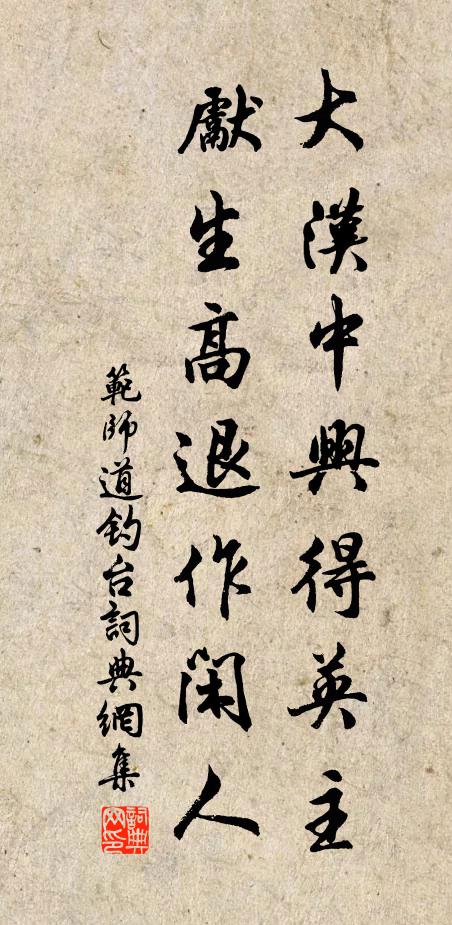 大漢中興得英主
獻生高退作閑人
範師道釣台詞典網集
詞典网印